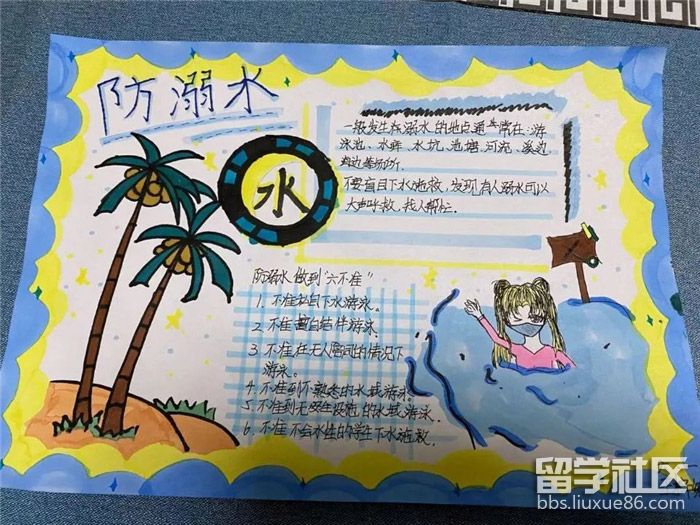 防溺水
水
一般发生在溺水的地点通常在:游
泳池、水库、水坑、池塘、河流、溪边
海边等场所。
不要盲目下水施救,发现有人溺水可以
大声呼救,找人帮忙。
防溺水做到"六不准"
1. 不准私自下水游泳。
2. 不准擅自结伴游泳。
3 不准在无人陪同的情况下
游泳。
4. 不准到不熟悉的水域游泳。
5. 不准到无安全设施的水域游泳
6. 不准不会水性的学生下水施救。
留学社区
bbs.liuxue86.com